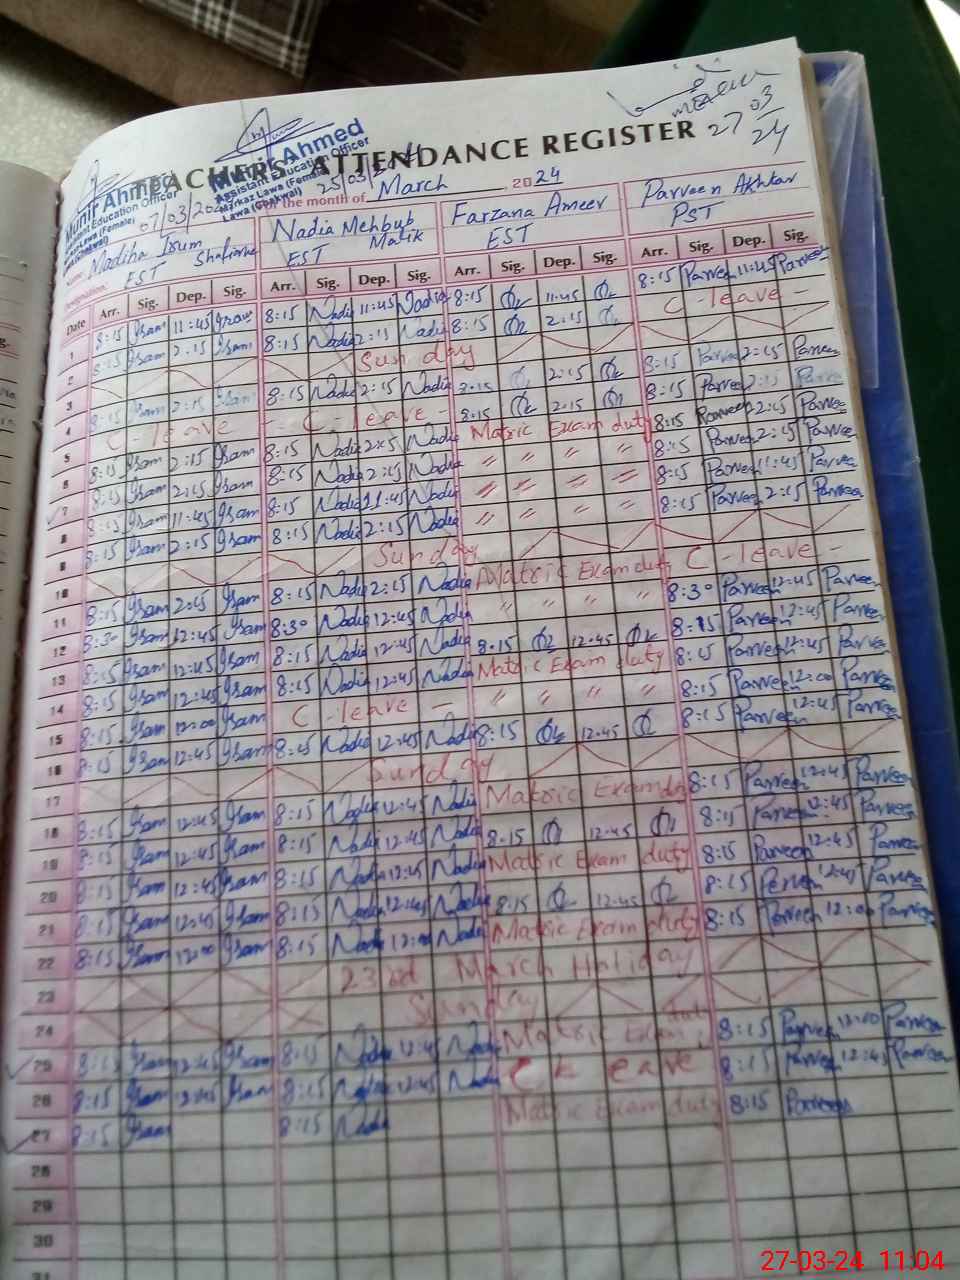 27 03
24
TEACHERS ATTENDANCE REGISTER
Munir Ahmed
Assistant Education Officer
Markaz Lawa (Female)
Lawa (Chakwal)
07/03/20
25/03/2
For the month of March 2024
Madiha Irum Shaheen
EST
Nadia Mehbub Malik
EST
Farzana Ameer
EST
Parveen Akhtar
PST
Date Arr. Sig. Dep. Sig. Arr. Sig. Dep. Sig. Arr. Sig. Dep. Sig. Arr. Sig. Dep. Sig.
1 8:15 Iram 11:45 Iram 8:15 Nadia 11:45 Nadia 8:15 11:45 8:15 Parveen 11:45 Parveen
2 8:15 Iram 2:15 Iram 8:15 Nadia 2:15 Nadia 8:15 2:15 C-leave-
3 Sunday
4 8:15 Iram 2:15 Iram 8:15 Nadia 2:15 Nadia 8:15 2:15 8:15 Parveen 2:15 Parveen
5 C-leave C-leave- 8:15 2:15 8:15 Parveen 2:15 Parveen
6 8:15 Iram 2:15 Iram 8:15 Nadia 2:15 Nadia Matric Exam duty 8:15 Parveen 2:15 Parveen
7 8:15 Iram 2:15 Iram 8:15 Nadia 2:15 Nadia " " " " 8:15 Parveen 2:15 Parveen
8 8:15 Iram 11:45 Iram 8:15 Nadia 11:45 Nadia " " " " 8:15 Parveen 11:45 Parveen
9 8:15 Iram 2:15 Iram 8:15 Nadia 2:15 Nadia " " " " 8:15 Parveen 2:15 Parveen
10 Sunday
11 8:15 Iram 2:15 Iram 8:15 Nadia 2:15 Nadia Matric Exam duty C-leave-
12 8:30 Iram 12:45 Iram 8:30 Nadia 12:45 Nadia " " " " 8:30 Parveen 12:45 Parveen
13 8:15 Iram 12:45 Iram 8:15 Nadia 12:45 Nadia 8:15 12:45 8:15 Parveen 12:45 Parveen
14 8:15 Iram 12:45 Iram 8:15 Nadia 12:45 Nadia Matric Exam duty 8:15 Parveen 12:45 Parveen
15 8:15 Iram 12:00 Iram C-leave - " " " " 8:15 Parveen 12:00 Parveen
16 8:15 Iram 12:45 Iram 8:15 Nadia 12:45 Nadia 8:15 12:45 8:15 Parveen 12:45 Parveen
17 Sunday
18 8:15 Iram 12:45 Iram 8:15 Nadia 12:45 Nadia Matric Exam duty 8:15 Parveen 12:45 Parveen
19 8:15 Iram 12:45 Iram 8:15 Nadia 12:45 Nadia 8:15 12:45 8:15 Parveen 12:45 Parveen
20 8:15 Iram 12:45 Iram 8:15 Nadia 12:45 Nadia Matric Exam duty 8:15 Parveen 12:45 Parveen
21 8:15 Iram 12:45 Iram 8:15 Nadia 12:45 Nadia 8:15 12:45 8:15 Parveen 12:45 Parveen
22 8:15 Iram 12:00 Iram 8:15 Nadia 12:00 Nadia Matric Exam duty 8:15 Parveen 12:00 Parveen
23 23rd March Holiday
24 Sunday
25 8:15 Iram 12:45 Iram 8:15 Nadia 12:45 Nadia Matric Exam duty 8:15 Parveen Parveen
26 8:15 Iram 12:45 Iram 8:15 Nadia 12:45 Nadia leave 8:15 Parveen 12:45 Parveen
27 8:15 Iram 8:15 Nadia Matric Exam duty 8:15 Parveen
28
29
30
31
27-03-24 11:04